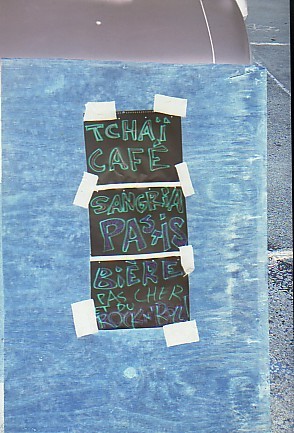 TCHAÏ
CAFÉ
SANGRIA
PASTIS
BIÈRE
PAS CHER
ET DU
ROCK'N'ROLL